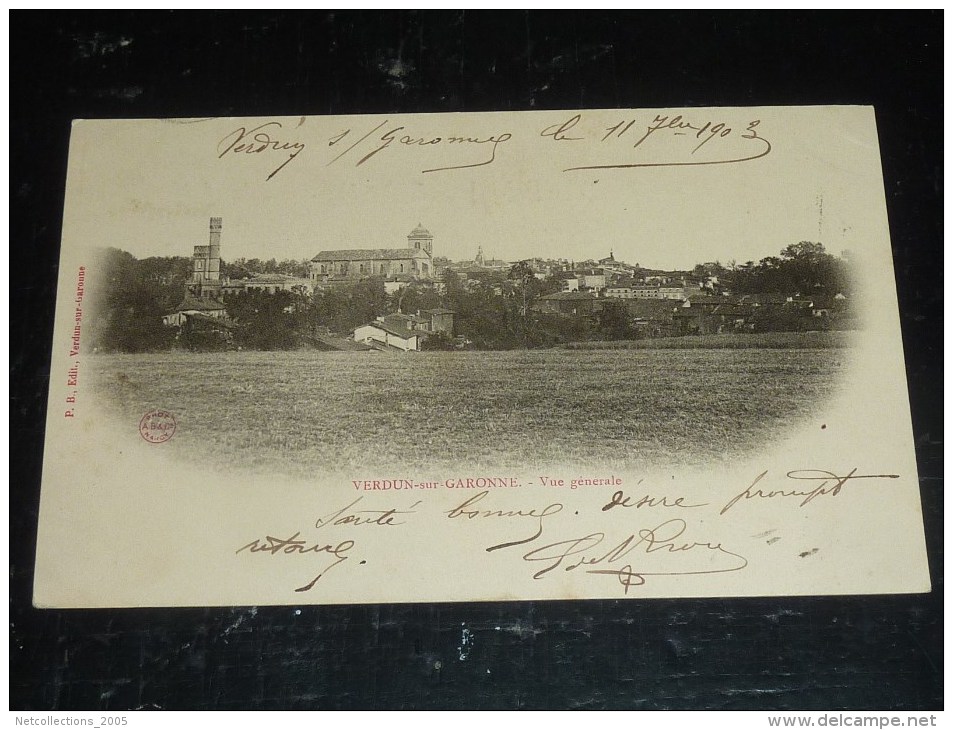 Verdun s/ Garonne le 11 7bre 1903
P. B., Edit., Verdun-sur-Garonne
VERDUN-sur-GARONNE. - Vue générale
Santé bonne. désire prompt
retour.
Netcollections_2005
www.delcampe.net